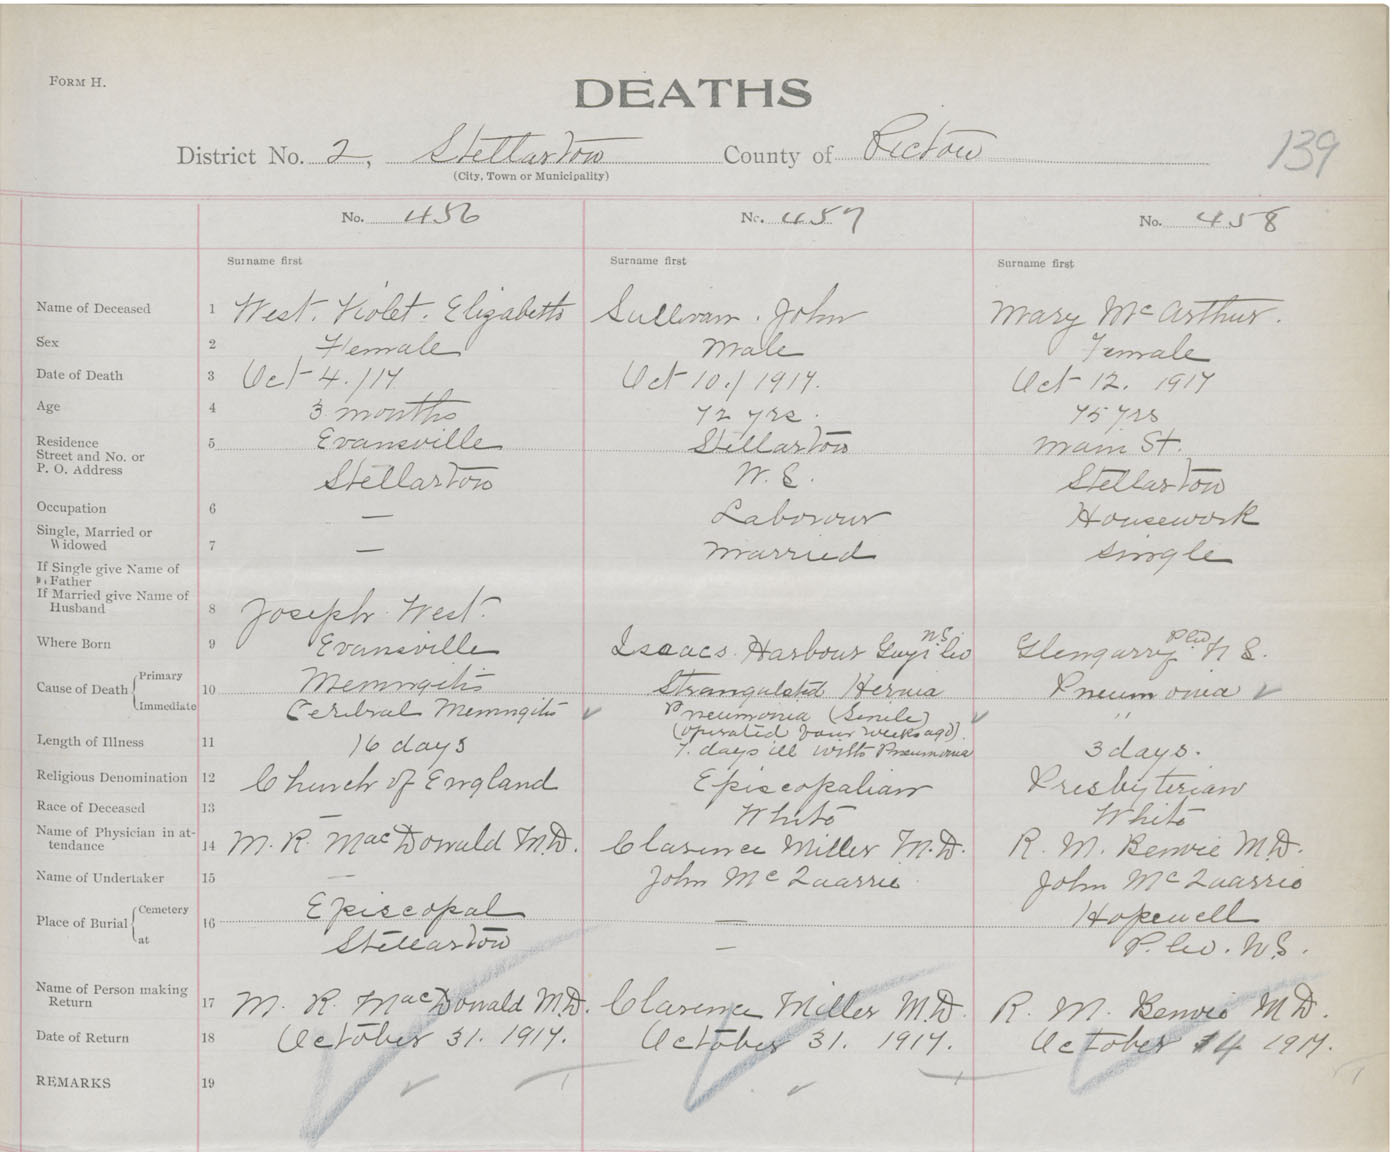 FORM H.
DEATHS
139
District No. 2, Stellarton County of Pictou
(City, Town or Municipality)
No. 456 No. 457 No. 458
Surname first Surname first Surname first
Name of Deceased 1 West. Violet. Elizabeth Sullivan. John Mary McArthur.
Sex 2 Female Male Female
Date of Death 3 Oct 4./17 Oct 10./1917. Oct 12. 1917
Age 4 3 months 72 yrs. 75 yrs
Residence Street and No. or P. O. Address 5 Evansville Stellarton Main St.
Stellarton N. S. Stellarton
Occupation 6 — Labourour Housework
Single, Married or Widowed 7 — Married Single
If Single give Name of Father
If Married give Name of Husband 8 Joseph West.
Where Born 9 Evansville Isaacs Harbour Guys Co N.S. Glengarry P. Co N S.
Cause of Death { Primary 10 Meningitis Strangulated Hernia Pneumonia
Immediate Cerebral Meningitis Pneumonia (Senile) "
(operated four weeks ago).
Length of Illness 11 16 days 7. days ill with Pneumonia 3 days.
Religious Denomination 12 Church of England Episcopalian Presbyterian
Race of Deceased 13 — White White
Name of Physician in attendance 14 M. R. MacDonald M.D. Clarence Miller M.D. R. M. Benvie M.D.
Name of Undertaker 15 — John McQuarrie John McQuarrie
Place of Burial { Cemetery 16 Episcopal — Hopewell
at Stellarton — P. Co. N.S.
Name of Person making Return 17 M. R. MacDonald M.D. Clarence Miller M.D. R. M. Benvie M.D.
Date of Return 18 October 31. 1917. October 31. 1917. October 14 1917.
REMARKS 19